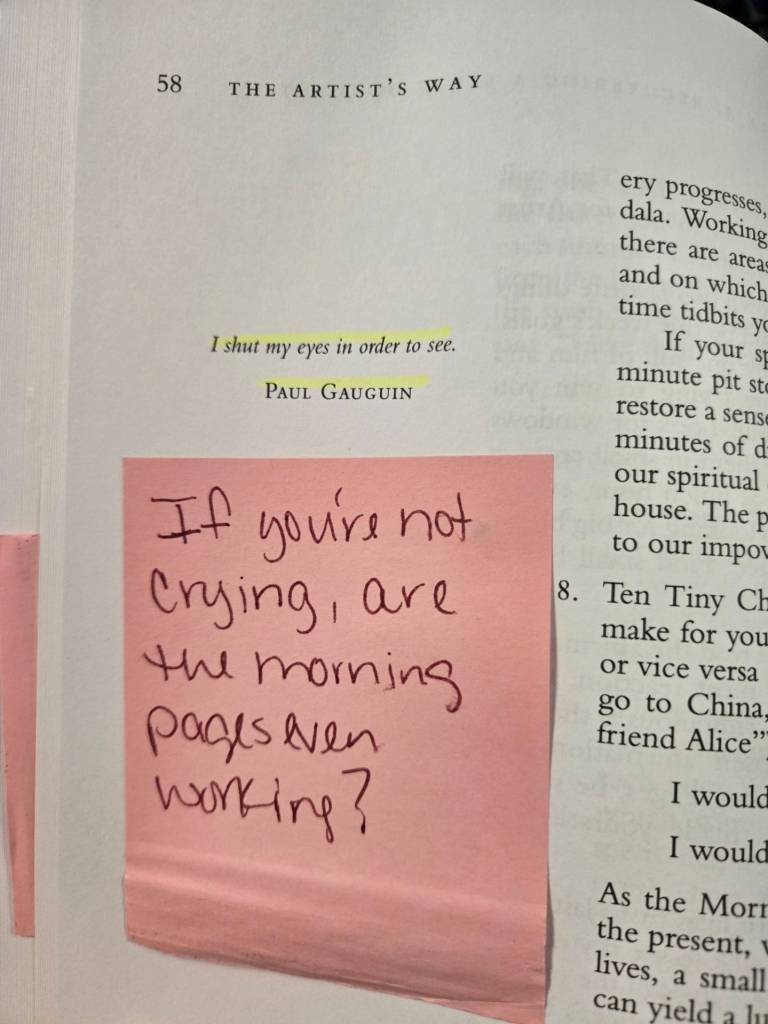 58 THE ARTIST'S WAY
I shut my eyes in order to see.
PAUL GAUGUIN
If you're not
crying, are
the morning
pages even
working?
ery progresses,
dala. Working
there are areas
and on which
time tidbits yo
If your sp
minute pit sto
restore a sense
minutes of d
our spiritual
house. The p
to our impov
8. Ten Tiny Ch
make for you
or vice versa
go to China,
friend Alice"
I would
I would
As the Morn
the present,
lives, a small
can yield a lu